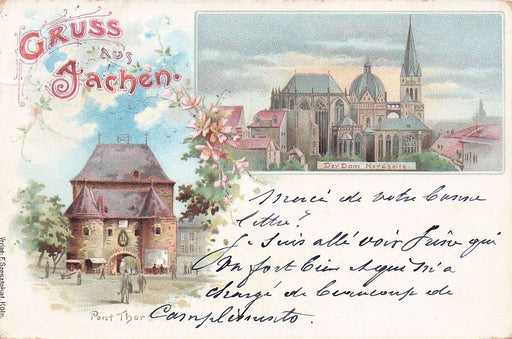 Gruss
aus
Aachen.
Der Dom Nordseite.
Merci de votre bonne
lettre!
Je suis allé voir Irène qui
va fort bien et qui m'a
chargé de beaucoup de
Compliments.
Pont Thor
Köln.